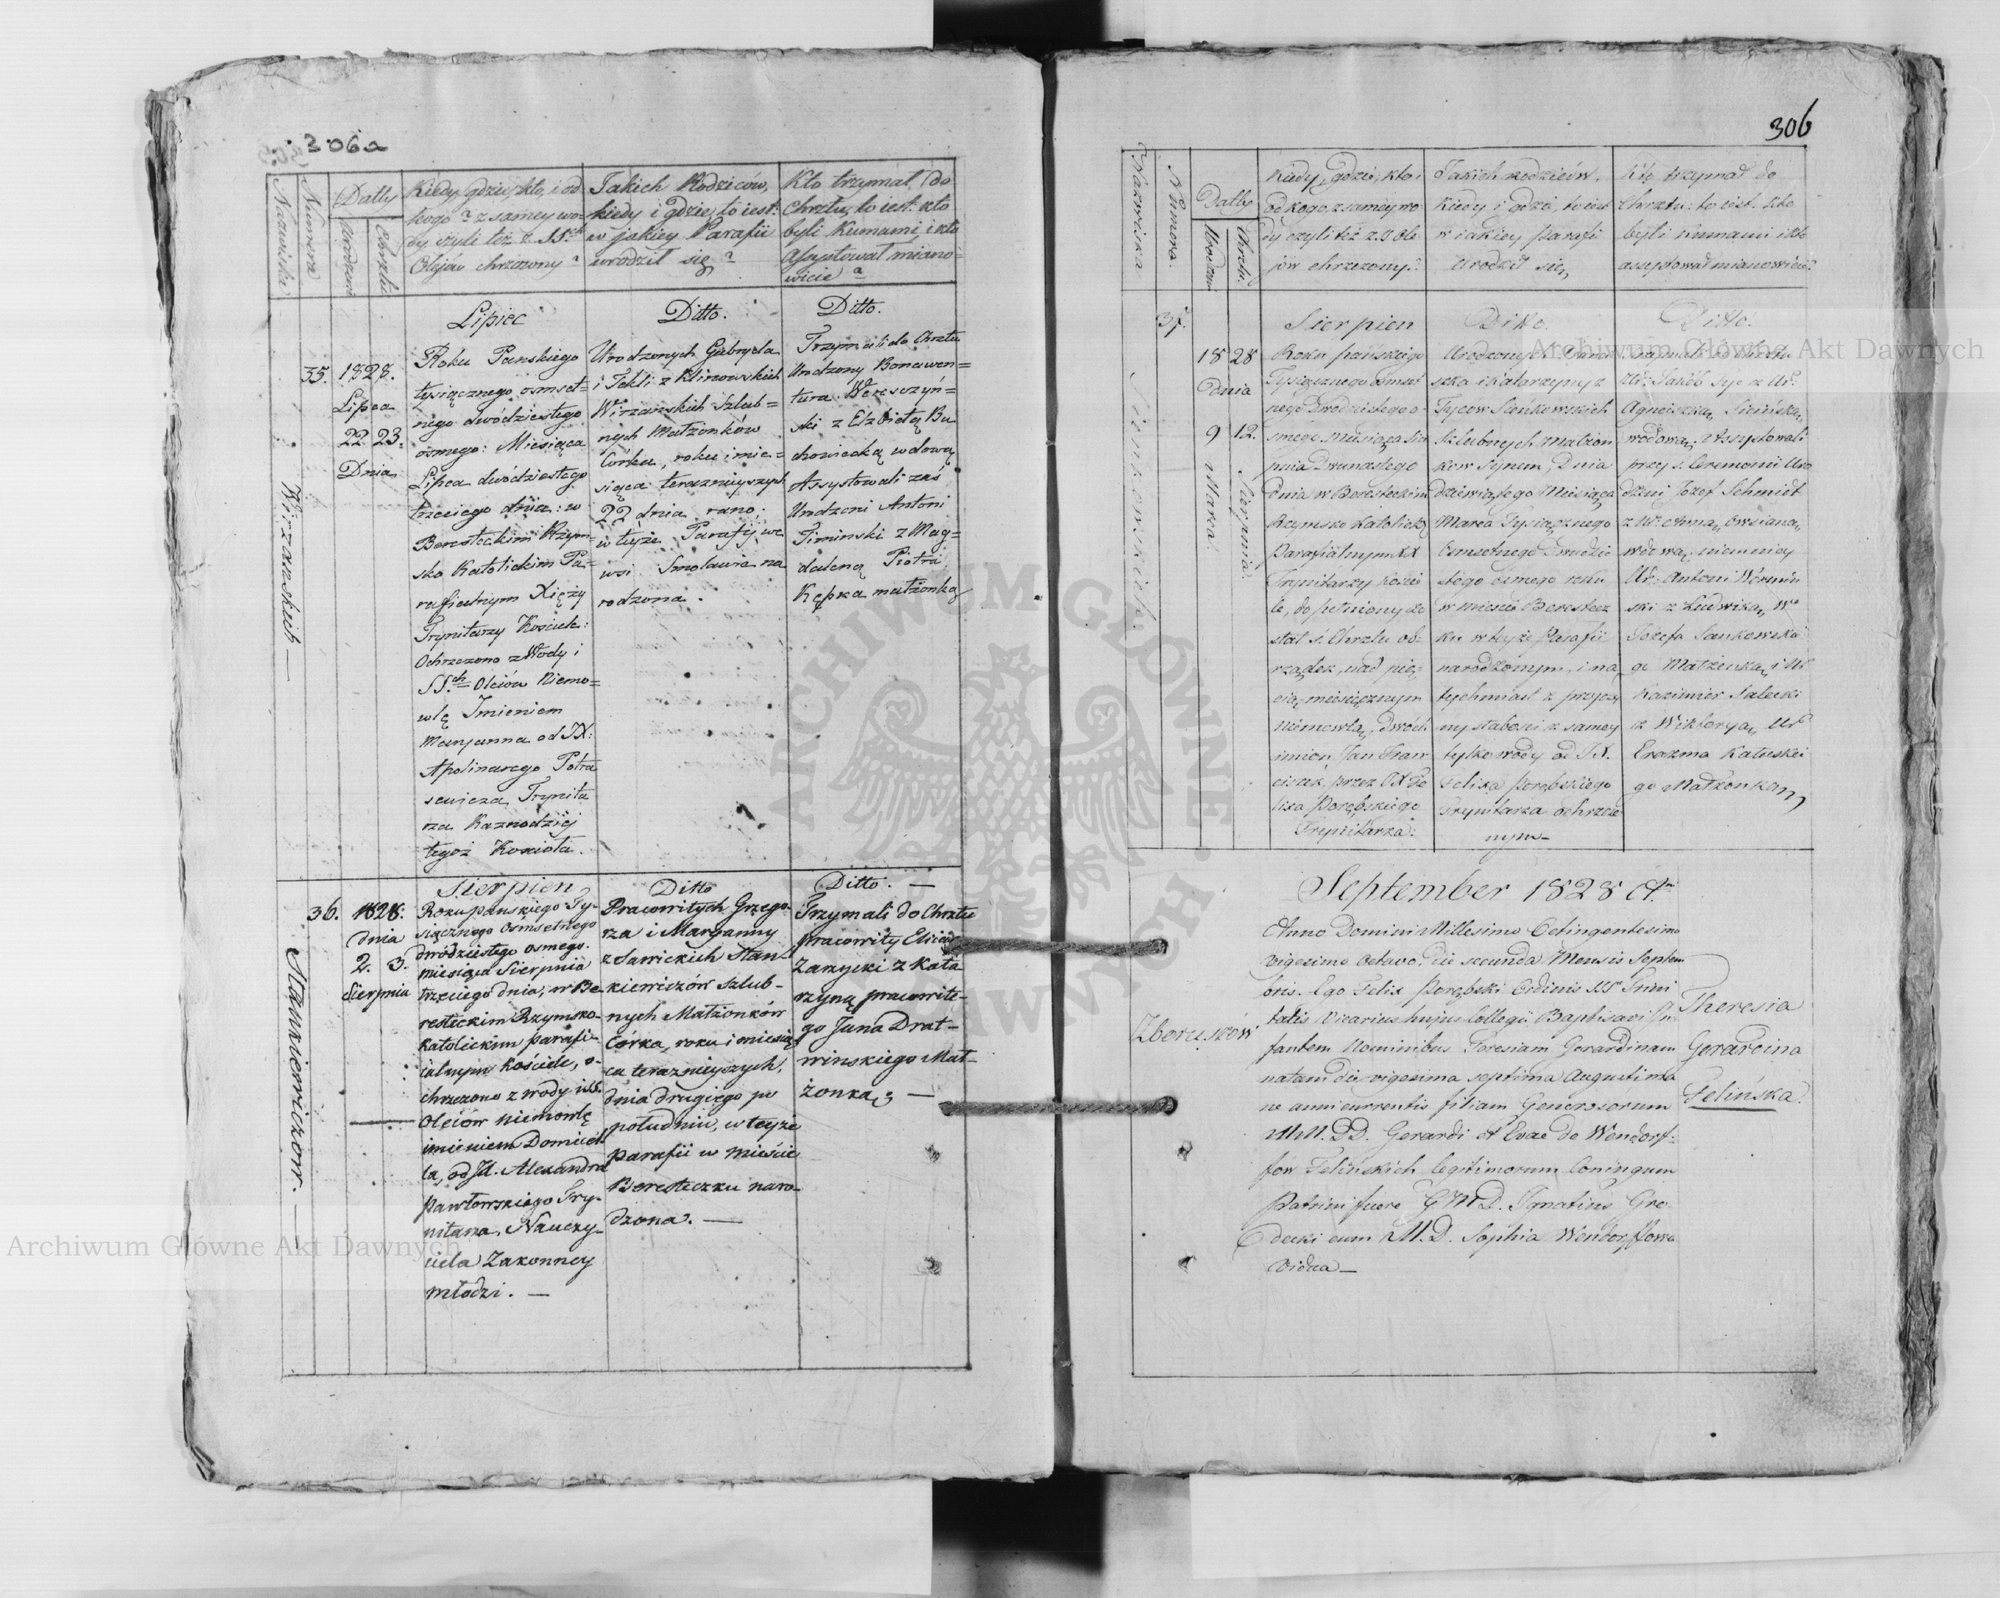 306a
Nazwiska
Numera
Datty
Urodzenia
Chrztu
Kiedy, gdzie, kto, i od
kogo? z samey wo-
dy czyli też z SS.ch
Olejów chrzczony?
Takich Rodziców,
kiedy i gdzie, to iest:
w jakiey Parafii
urodził się?
Kto trzymał do
Chrztu, to iest: kto
byli Kumami, i kto
Assystował miano-
wicie?
Wirzańskich —
35.
1828.
Lipca
22 23.
Dnia
Lipiec
Roku Pańskiego
tysiącznego ósmset-
nego dwódziestego
ósmego: Miesiąca
Lipca dwódziestego
trzeciego dnia: w
Beresteckim Rzym-
sko Katolickim Pa-
rafialnym Xięży
Trynitarzy Kościele:
Ochrzczono z Wody i
SS.ch Oleiów Niemo=
wlę Imieniem
Maryanna od JX:
Apolinarego Potra
sewicza Trynita
rza Kaznodziej
tegoż Kościoła.
Ditto.
Urodzonych Gabryela
i Tekli z Klinowskich
Wirzańskich szlub=
nych Małżonków
Córka, roku i mie=
siąca teraznieyszych
22 dnia rano;
w teyże Parafij we
wsi Smolawie na
rodzona.
Ditto.
Trzymali do Chrztu
Urodzony Bonawen=
tura Wereszczyń=
ski z Elżbietą Bu
chowiecką wdową
Assystowali zaś
Urodzeni Antoni
Timinski z Mag=
daleną Piotra
Kępka małżonką
Stankiewiczow. —
36.
1828.
dnia
2. 3.
Sierpnia
Sierpien
Roku pańskiego Ty-
siącznego ósmsetnego
dwódziestego osmego.
miesiąca Sierpnia
trzeciego dnia, w Be
resteckim Rzymsko-
Katolickim parafi-
ialnym Kościele, o-
chrzczono z wody i SS.
Oleiow niemowlę
imieniem Domicel
la, od Jd. Alexandra
Pawłowskiego Try-
nitarza, Nauczy-
ciela Zakonney
młodzi. —
Ditto
Pracowitych Grzego-
rza i Maryanny
z Sawickich Stan-
kiewiczów szlub-
nych Małżonków
Córka, roku i miesią
ca teraznieyszych,
dnia drugiego po
południu, w teyże
parafii w mieście
Beresteczku naro-
dzona. —
Ditto. —
Trzymali do Chrztu
pracowity Elicer
Zarycki z Kata
rzyną pracowite-
go Jana Drat-
wińskiego Mał-
żonką. —
306
Nazwiska
Numera.
Datty
Urodzenia
Chrztu.
Kiedy, gdzie, kto i
od kogo, z samey wo
dy czyli też z SS Ole
jów chrzczony?
Takich rodziców.
Kiedy i gdzie, to iest
w iakiey Parafii
urodził się,
Kto trzymał do
Chrztu: to iest. kto
byli Kumami i kto
assystował mianowicie?
37.
1828
dnia
9 12.
Marca.
Sierpnia.
Sierpien
Roku pańskiego
Tysiącznego ósmset
nego Dwudziestego o-
smego miesiąca Sier
pnia Dwunastego
dnia w Beresteckim
Rzymsko Katolicko
Parafialnym XX
Trynitarzy Kościele
le, dopełniony zo
stał ś. Chrztu ob-
rządek, nad pię-
cio miesięcznym
niemowlą, dwóch
imion, Jan Fran
ciszek, przez JX Fe
lixa Porębskiego
Trynitarza.
Ditto.
szka i Katarzyny z
Tycow Sieńkowskich
szlubnych Małżon
kow Synem, Dnia
dziewiątego Miesiąca
Marca Tysiącznego
Osmsetnego Dwudzie
stego ósmego roku
w mieście Berestecz
ku w teyże Parafii
narodzonym, i na
tychmiast z przyczy
ny słabości z samey
tylko wody od JX.
Felixa Porębskiego
Trynitarza ochrzczo
nym —
Ditto.
Agnieszką
wdową. Assystowali
przy ś. Ceremonii Uro
dzeni Jozef Schmiedt
z Ur. Anną
wdową, niemniey
Ur. Antoni
ski z Ludwiką, Ur.
Jozefa Sankowskie
go Małżonką, i Ur
Kazimier Salecki
z Wiktoryą, Ur.
Erazma Kaleńskie
go Małżonką
September 1828 A.
Zboryszów
Anno Domini Millesimo Octingentesimo
vigesimo octavo, die secunda Mensis Septem
bris. Ego Felix Porębski Ordinis SS. Trini
tatis Vicarius hujus Collegii Baptisavi In
fantem Nominibus Teresiam Gerardinam
natam die vigesima septima Augusti ma
ne anni currentis filiam Generosorum
MM. DD. Gerardi et Evae de Wendorf-
fów Felińskich legitimorum Coniugum
Patrini fuere G. M D. Ignatius Gro
decki cum M. D. Sophia Wendorffowa
vidua —
Theresia
Gerardina
Felińska.
Archiwum Główne Akt Dawnych
Archiwum Główne Akt Dawnych
ARCHIWUM GŁÓWNE AKT DAWNYCH